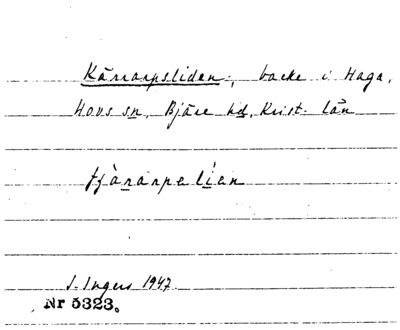 Kärrarpsliden, backe i Haga,
Hovs sn, Bjäre hd, Krist. län
I. Ingers 1947.
Nr 5323.